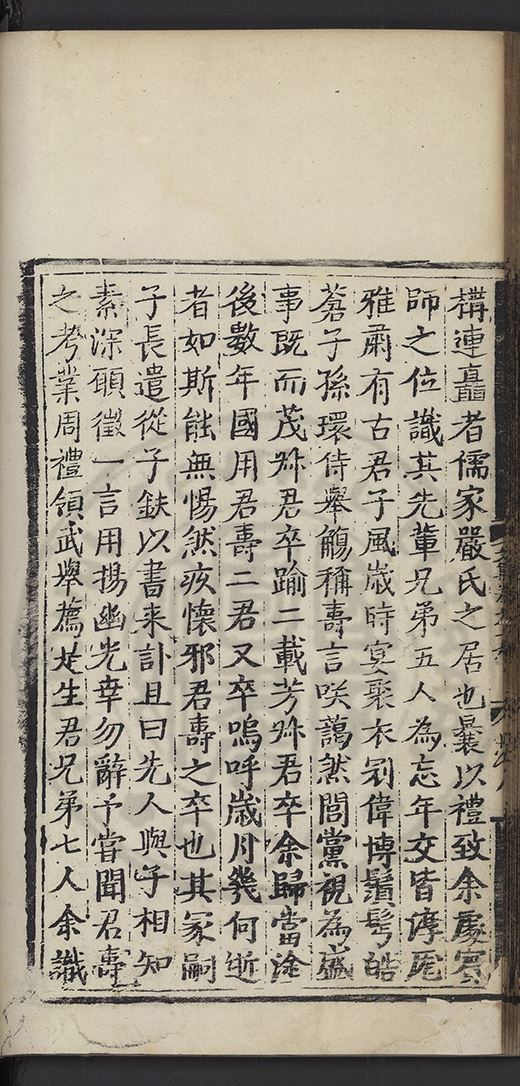 構連矗者儒家嚴氏之居也曩以禮致余處賓
師之位識其先輩兄弟五人為忘年交皆淳厖
雅肅有古君子風歲時宴聚衣冠偉博鬚髩皓
蒼子孫環侍舉觴稱壽言咲藹然閭黨視為盛
事既而茂卿君卒踰二載芳卿君卒余歸當塗
後數年國用君壽二君又卒嗚呼歲月幾何逝
者如斯能無惕然疚懷邪君壽之卒也其冢嗣
子長遣從子鈇以書来訃且曰先人與子相知
素深願徵一言用揚幽光幸勿辭予嘗聞君壽
之考業周禮領武舉薦是生君兄弟七人余識